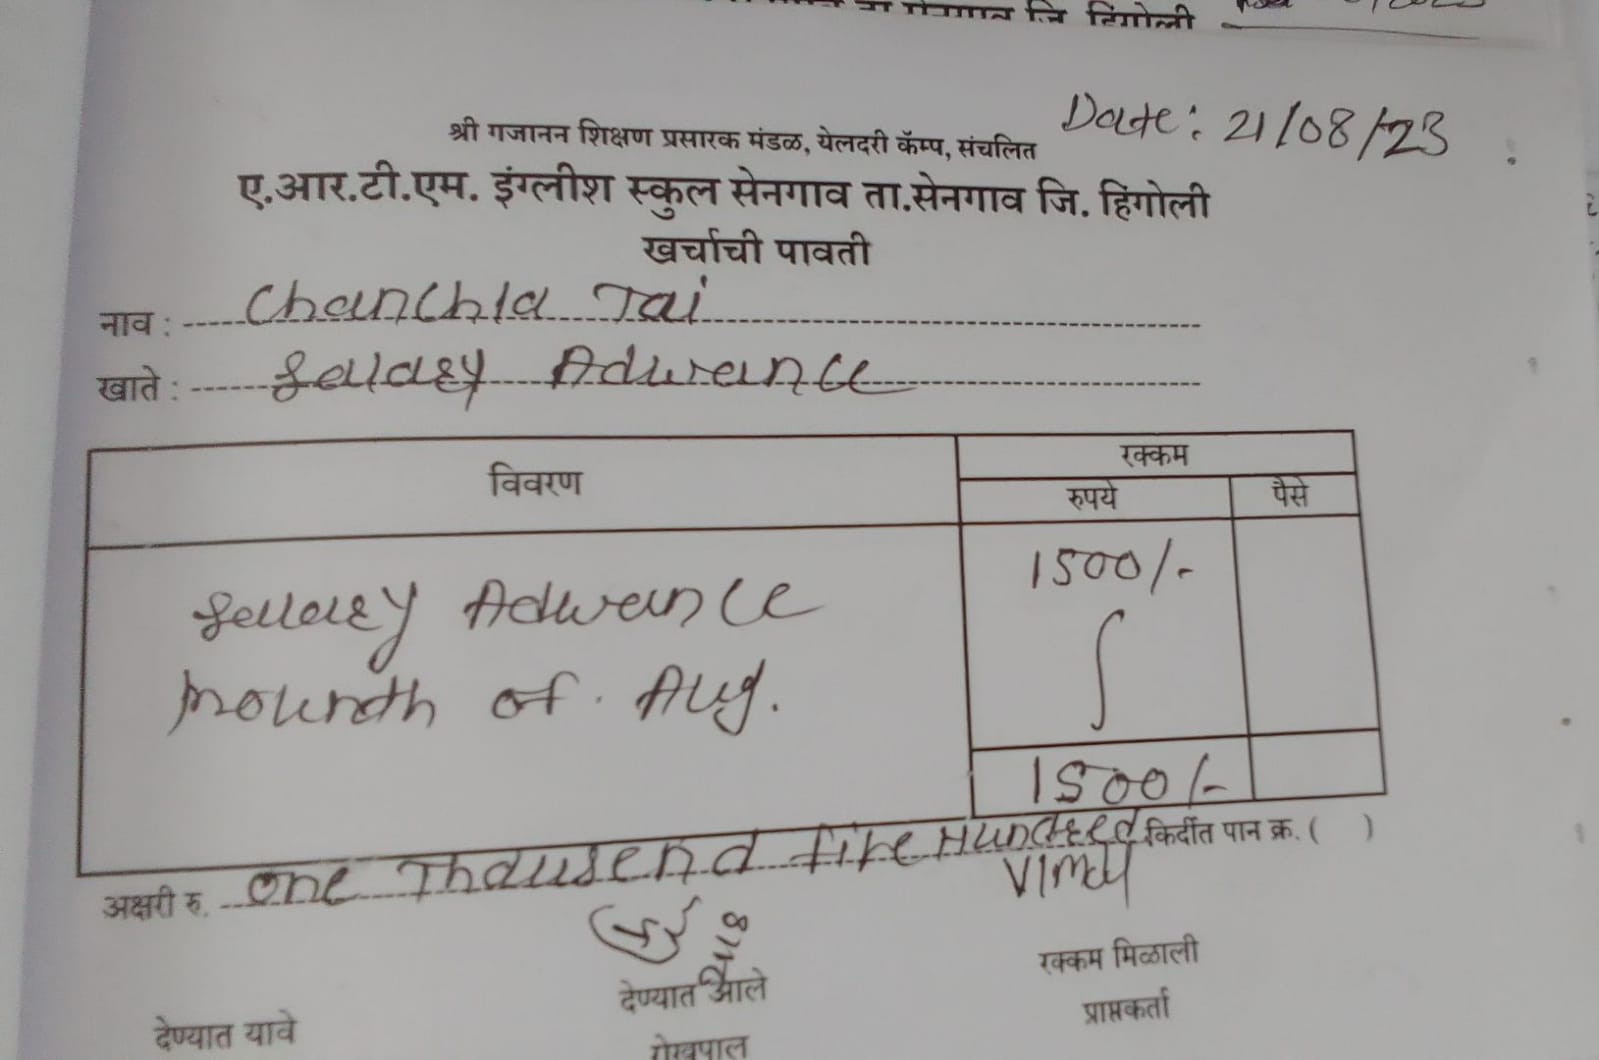 जि हिंगोली
Date: 21/08/23
श्री गजानन शिक्षण प्रसारक मंडळ, येलदरी कॅम्प, संचलित
ए.आर.टी.एम. इंग्लीश स्कुल सेनगाव ता.सेनगाव जि. हिंगोली
खर्चाची पावती
नाव : Chanchla Tai
खाते : Sallary Adwance
विवरण रक्कम
रुपये पैसे
Sallary Adwance 1500/-
mounth of. Aug.
1500/-
अक्षरी रु. One Thausend five Hundred किर्दीत पान क्र. ( )
देण्यात आले रक्कम मिळाली
देण्यात यावे प्राप्तकर्ता